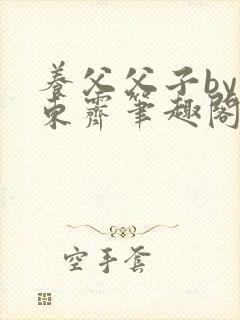 养父父子by
东霽笔趣阁
空手套